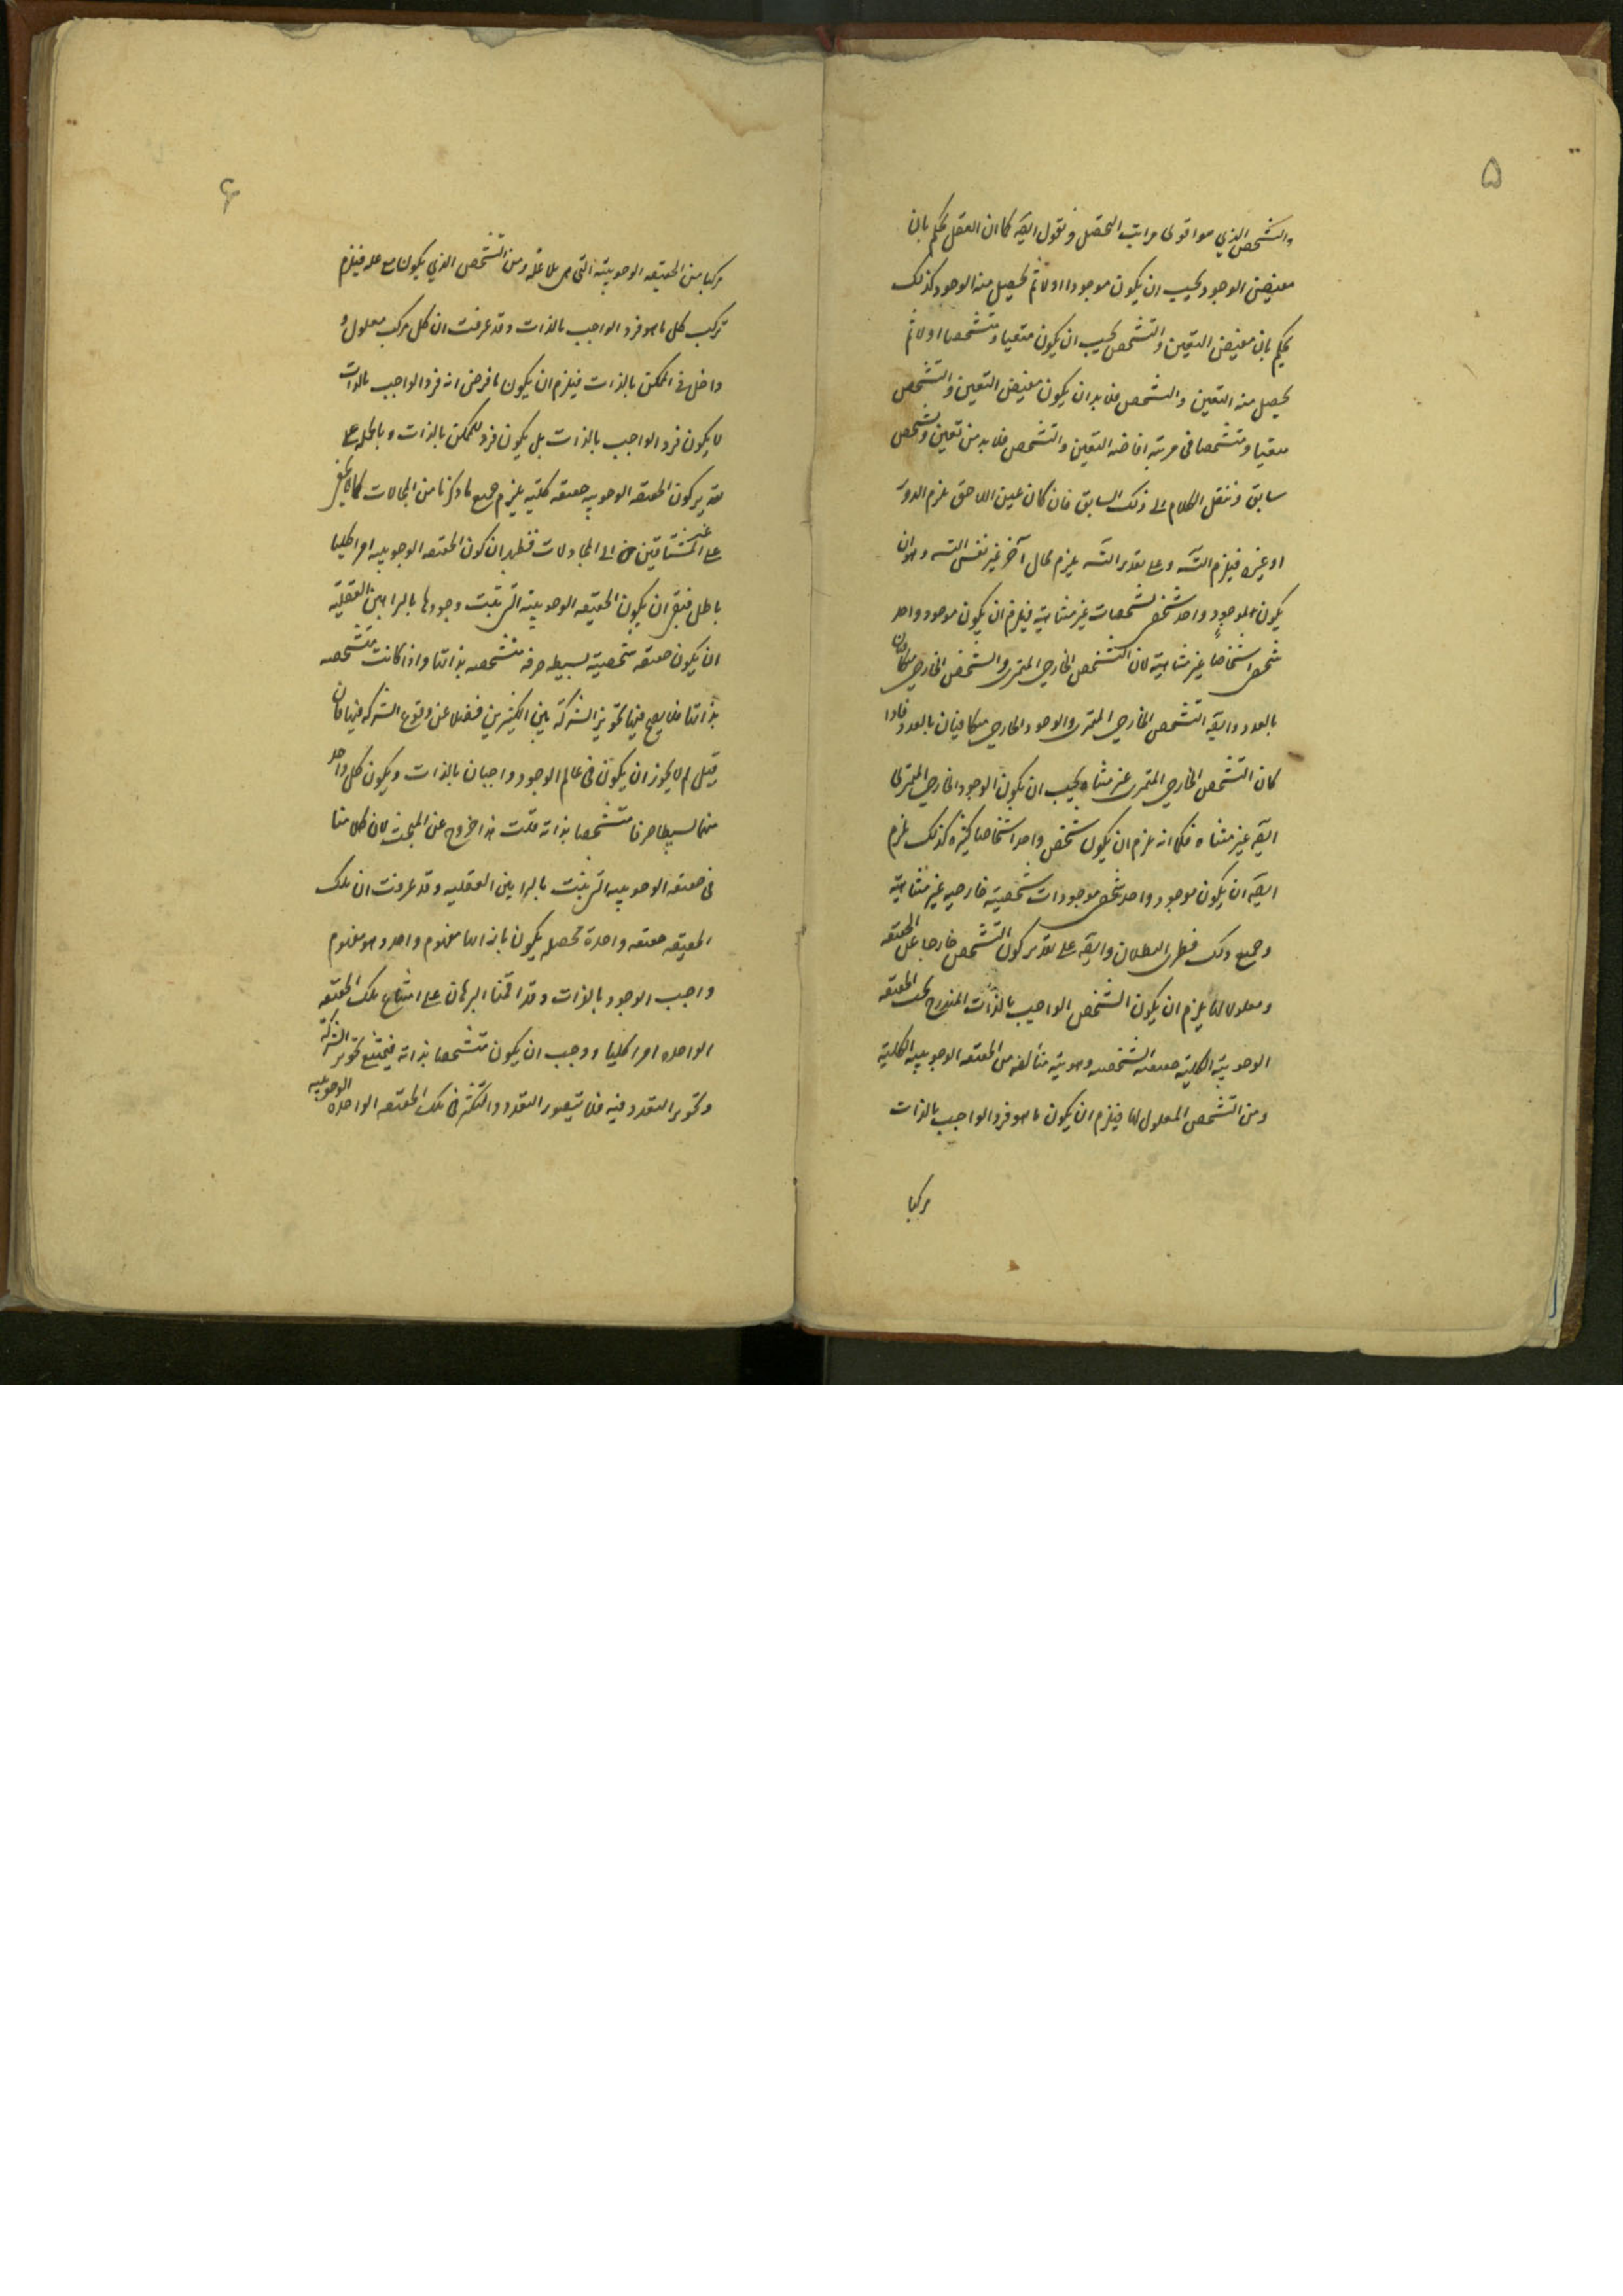 ۵
والتشخص الذي هو اقوى مراتب التحصل ونقول ايضه كما ان العقل يحكم بان
مفيض الوجود يجب ان يكون موجودا اولا ثم يحصل منه الوجود كذلك
يحكم بان مفيض التعين والتشخص يجب ان يكون متعينا ومتشخصا اولا ثم
يحصل منه التعين والتشخص فلا بد ان يكون مفيض التعين والتشخص
متعينا ومتشخصا في مرتبة افاضه التعين والتشخص فلا بد من تعين وتشخص
سابق وننقل الكلام الى ذلك السابق فان كان عين اللاحق يلزم الدور
او غيره فيلزم التسه وعلى تقدير التسه يلزم محال آخر غير نفس التسه وهو ان
يكون الموجود واحد شخصي تشخصات غير متناهية فيلزم ان يكون موجود واحد
شخصي اشخاصا غير متناهية لان التشخص الخارجي المتمرى والشخص الخارجي متكافيان
بالعدد وايضه التشخص الخارجي المتمرى والوجود الخارجي متكافيان بالعدد فاذا
كان التشخص الخارجي المتمرى غير متناه يجب ان يكون الوجود الخارجي
ايضه غير متناه فكما انه يلزم ان يكون شخص واحد اشخاصا كثيرة كذلك يلزم
ايضه ان يكون موجود واحد شخصي موجودات شخصية خارجيه غير متناهية
وجميع ذلك فطرى البطلان وايضه على تقدير كون التشخص خارجا عن الحقيقه
ومعلولا لها يلزم ان يكون الشخص الواجب بالذات المندرج تحت الحقيقه
الوجوبية الكلية حقيقته الشخصه وهويته متألفه من الحقيقه الوجوبيه الكلية
ومن التشخص المعلول لها فيلزم ان يكون ما هو فرد الواجب بالذات
مركبا
۶
مركبا من الحقيقه الوجوبية التي هي بلا علة ومن التشخص الذي يكون مع عله فيلزم
تركب كل ما هو فرد الواجب بالذات وقد عرفت ان كل مركب معلول و
داخل في الممكن بالذات فيلزم ان يكون ما فرض انه فرد الواجب بالذات
لا يكون فرد الواجب بالذات بل يكون فرد الممكن بالذات وبالجمله على
تقدير كون الحقيقه الوجوبيه حقيقه كلية يلزم جميع ما ذكرنا من المحالات كما لا يخفى
على غير المشتاقين الى المجادلات فظهر ان كون الحقيقه الوجوبيه امرا كليا
باطل فبقى ان يكون الحقيقه الوجوبية التي يثبت وجودها بالبراهين العقلية
ان يكون حقيقه شخصية بسيطه صرفه متشخصه بذاتها واذا كانت متشخصه
بذاتها فلا يصح فيها تجويز الشركة بين الكثيرين فضلا عن وقوع الشركه فيها فان
قيل لم لا يجوز ان يكون في عالم الوجود واجبان بالذات ويكون كل واحد
منهما بسيطا صرفا متشخصا بذاته قلت هذا خروج عن المبحث لان كلامنا
في حقيقه الوجوبيه التي يثبت بالبراهين العقليه وقد عرفت ان تلك
الحقيقه حقيقه واحدة محصله يكون بازائها مفهوم واحد وهو مفهوم
واجب الوجود بالذات وقد اقمنا البرهان على امتناع تلك الحقيقه
الواحده امرا كليا ووجب ان يكون متشخصا بذاته فيمتنع تجويز الشركة
وتجويز التعدد فيه فلا يتصور التعدد والتكثر في تلك الحقيقه الواحده الوجوبيه